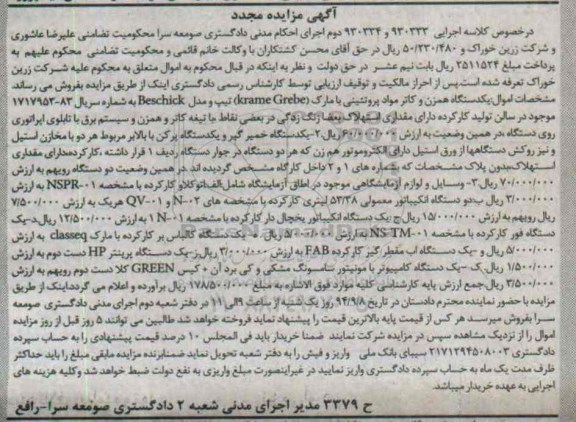 آگهی مزایده مجدد
درخصوص کلاسه اجرایی ۹۳۰۳۳۳ و ۹۳۰۳۳۴ دوم اجرای احکام مدنی دادگستری صومعه سرا محکومیت تضامنی علیرضا عاشوری
و شرکت زرین خوراک و ۵۰/۳۳۰/۴۸۰ ریال در حق آقای محسن کشتکاران با وکالت خانم قائمی و محکومیت تضامنی محکوم علیهم به
پرداخت مبلغ ۲۵۱۱۵۲۴ ریال بابت نیم عشر در حق دولت و نظر به اینکه در قبال محکوم به اموال متعلق به محکوم علیه شرکت زرین
خوراک تعرفه شده است پس از احراز مالکیت و توقیف ارزیابی توسط کارشناس رسمی دادگستری اینک از طریق مزایده بفروش می رساند.
مشخصات اموال:یکدستگاه همزن و کاتر مواد پروتئینی با مارک (krame Grebe) تیپ و مدل Beschick به شماره سریال ۸۳-۱۷۱۷۹۵۳
موجود در سالن تولید کارکرده دارای مقداری استهلاک بعضا زنگ زدگی در بعضی نقاط با تیغه کاتر و همزن و سیستم برق با تابلوی اپراتوری
روی دستگاه ،در همین وضعیت به ارزش ۶۰/۰۰۰/۰۰۰ریال ۲-یکدستگاه خمیر گیر و یکدستگاه پرکن با بالابر مربوط هر دو با مخازن استیل
و نیز روکش دستگاهها از ورق استیل دارای الکتروموتور هم زن که هر دو دستگاه در جوار دستگاه ردیف ۱ قرار داشته ،کارکرده،دارای مقداری
استهلاک،بدون پلاک مشخصات که بشماره های ۱ و ۲ داخل کارگاه مشخص گردیده اند.در همین وضعیت دو دستگاه رویهم به ارزش
۷۰/۰۰۰/۰۰۰ ریال ۳- وسایل و لوازم آزمایشگاهی موجود در اطاق آزمایشگاه شامل:الف:اتوکلاو کارکرده با مشخصه NSPR-۰۱ به ارزش
۳/۰۰۰/۰۰۰ ریال ب:دو دستگاه انکیباتور معمولی ۵۳/۳۸ لیتری کارکرده با مشخصه های N-۰۲ و QV-۰۱ هریک به ارزش ۷/۵۰۰/۰۰۰
ریال رویهم به ارزش ۱۵/۰۰۰/۰۰۰ ریال ج:یک دستگاه انکیباتور یخچال دار کارکرده با مشخصه N-۰۱ به ارزش ۱۲/۵۰۰/۰۰۰ ریال د-یک
دستگاه فور کارکرده با مشخصه NS-TM-۰۱ به ارزش ۵/۰۰۰/۰۰۰ ریال ه- یک دستگاه لباس پر کارکرده با مارک classeq به ارزش
۵/۰۰۰/۰۰۰ ریال و -یک دستگاه آب مقطر گیر کارکرده FAB به ارزش ۳/۰۰۰/۰۰۰ ریال ز-یک دستگاه پرینتر HP دست دوم به ارزش
۱/۵۰۰/۰۰۰ ریال ک -یک دستگاه کامپیوتر با مونیتور سامسونگ مشکی و کی برد آن + کیس GREEN کلا دست دوم رویهم به ارزش
۳/۵۰۰/۰۰۰ ریال جمع ارزش پایه کارشناسی کلیه موارد فوق الاشاره به مبلغ ۱۷۸/۵۰۰/۰۰۰ ریال برآورده و اعلام می گردداینک از طریق
مزایده با حضور نماینده محترم دادستان در تاریخ ۹۴/۹/۸ روز یک شنبه از ساعت ۹ الی ۱۱ در دفتر شعبه دوم اجرای مدنی دادگستری صومعه
سرا بفروش میرسد هر کس از قیمت پایه بالاترین قیمت را پیشنهاد نماید فروخته خواهد شد طالبین می توانند ۵ روز قبل از روز مزایده
اموال را از نزدیک مشاهده سپس در مزایده شرکت نمایند ضمنا خریدار باید فی المجلس ۱۰ درصد قیمت پیشنهادی را به حساب سپرده
دادگستری ۲۱۷۱۲۹۴۵۰۸۰۰۳ سیبای بانک ملی واریز و فیش را به دفتر شعبه تحویل نماید ضمنابرنده مزایده مابقی مبلغ را باید حداکثر
ظرف مدت یک ماه به حساب سپرده دادگستری واریز نمایید در غیراینصورت مبلغ واریزی به نفع دولت ضبط خواهد شد وکلیه هزینه های
اجرایی به عهده خریدار میباشد.
ح ۳۳۷۹ مدیر اجرای مدنی شعبه ۲ دادگستری صومعه سرا-رافع